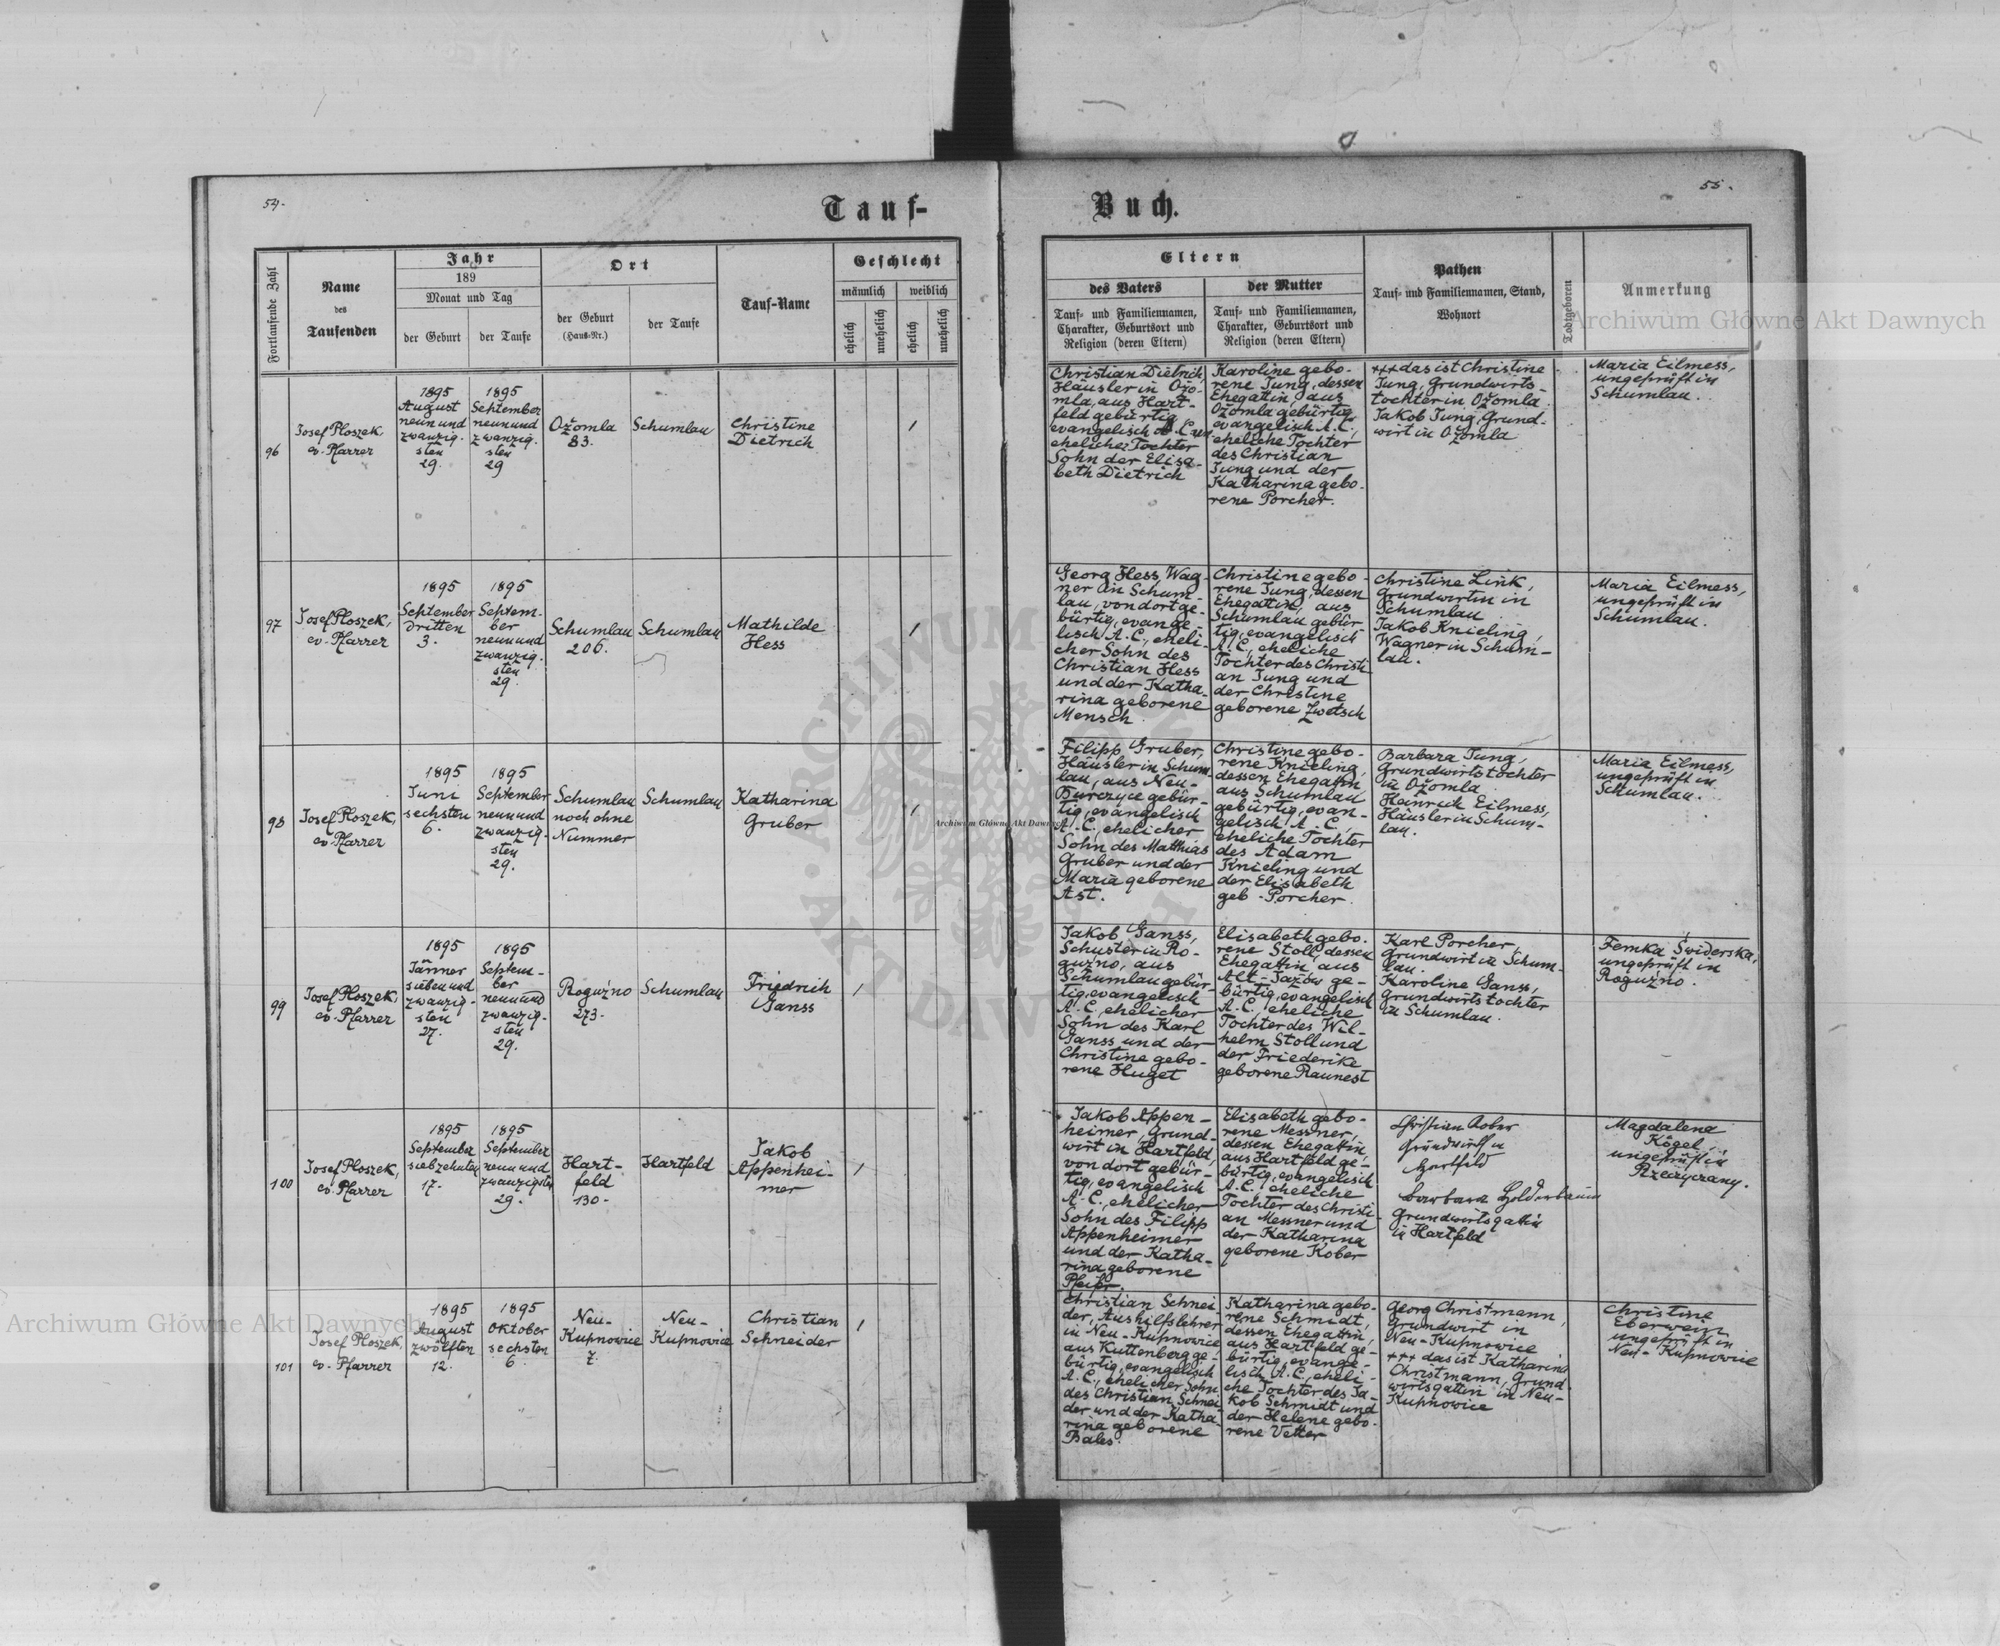 54.
55.
Tauf-
Buch.
Fortlaufende Zahl
Name
des
Taufenden
Jahr
189
Monat und Tag
der Geburt
der Taufe
Ort
der Geburt
(Haus-Nr.)
der Taufe
Tauf-Name
Geschlecht
männlich
weiblich
ehelich
unehelich
ehelich
unehelich
Eltern
des Vaters
Tauf- und Familiennamen,
Charakter, Geburtsort und
Religion (deren Eltern)
der Mutter
Tauf- und Familiennamen,
Charakter, Geburtsort und
Religion (deren Eltern)
Pathen
Tauf- und Familiennamen, Stand,
Wohnort
Todtgeboren
Anmerkung
96
Josef Ploszek,
ev. Pfarrer
1895
August
neun und
zwanzig-
sten
29.
1895
September
neun und
zwanzig-
sten
29
Ožomla
83.
Schumlau
Christine
Dietrich
1
Christian Dietrich,
Häusler in Ožo-
mla, aus Hart-
feld gebürtig,
evangelisch A. C.
eheliche Tochter
Sohn der Elisa-
beth Dietrich
Karoline gebo-
rene Jung, dessen
Ehegattin, aus
Ožomla gebürtig,
evangelisch A. C.,
eheliche Tochter
des Christian
Jung und der
Katharina gebo-
rene Porcher.
+++ das ist Christine
Jung, Grundwirts-
tochter in Ožomla
Jakob Jung, Grund-
wirt in Ožomla
Maria Eilmess,
ungeprüft in
Schumlau.
97
Josef Ploszek,
ev. Pfarrer
1895
September
dritten
3.
1895
Septem-
ber
neun und
zwanzig-
sten
29.
Schumlau
206.
Schumlau
Mathilde
Hess
1
Georg Hess, Wag-
ner in Schum-
lau, von dort ge-
bürtig, evange-
lisch A. C., eheli-
cher Sohn des
Christian Hess
und der Katha-
rina geborene
Mensch
Christine gebo-
rene Jung, dessen
Ehegattin, aus
Schumlau gebür-
tig, evangelisch
A. C., eheliche
Tochter des Christi-
an Jung und
der Christine
geborene Zwetsch
Christine Link,
Grundwirtin in
Schumlau
Jakob Knieling,
Wagner in Schum-
lau.
Maria Eilmess,
ungeprüft in
Schumlau.
98
Josef Ploszek,
ev. Pfarrer
1895
Juni
sechsten
6.
1895
September
neun und
zwanzig-
sten
29.
Schumlau
noch ohne
Nummer
Schumlau
Katharina
Gruber
1
Filipp Gruber,
Häusler in Schum-
lau, aus Neu-
Burczyce gebür-
tig, evangelisch
A. C., ehelicher
Sohn des Matthias
Gruber und der
Maria geborene
Ast.
Christine gebo-
rene Knieling,
dessen Ehegattin
aus Schumlau
gebürtig, evan-
gelisch A. C.,
eheliche Tochter
des Adam
Knieling und
der Elisabeth
geb. Porcher.
Barbara Jung,
Grundwirtstochter
in Ožomla
Heinrich Eilmess,
Häusler in Schum-
lau.
Maria Eilmess,
ungeprüft in
Schumlau.
99
Josef Ploszek,
ev. Pfarrer
1895
Jänner
sieben und
zwanzig-
sten
27.
1895
Septem-
ber
neun und
zwanzig-
sten
29.
Roguźno
273.
Schumlau
Friedrich
Ganss
1
Jakob Ganss,
Schuster in Ro-
guźno, aus
Schumlau gebür-
tig, evangelisch
A. C., ehelicher
Sohn des Karl
Ganss und der
Christine gebo-
rene Huget
Elisabeth gebo-
rene Stoll, dessen
Ehegattin, aus
Alt-Jazów ge-
bürtig, evangelisch
A. C., eheliche
Tochter des Wil-
helm Stoll und
der Friederike
geborene Raunest
Karl Porcher,
Grundwirt in Schum-
lau.
Karoline Ganss,
Grundwirtstochter
in Schumlau.
Femka Świderska,
ungeprüft in
Roguźno.
100
Josef Ploszek,
ev. Pfarrer
1895
September
siebzehnten
17.
1895
September
neun und
zwanzigsten
29.
Hart-
feld
130.
Hartfeld
Jakob
Appenhei-
mer
1
Jakob Appen-
heimer, Grund-
wirt in Hartfeld,
von dort gebür-
tig, evangelisch
A. C., ehelicher
Sohn des Filipp
Appenheimer
und der Katha-
rina geborene
Pfeifer.
Elisabeth gebo-
rene Messner,
dessen Ehegattin,
aus Hartfeld ge-
bürtig, evangelisch
A. C., eheliche
Tochter des Christi-
an Messner und
der Katharina
geborene Kober
Christian Kober
Grundwirt in
Hartfeld
Barbara Holderbaum
Grundwirtsgattin
in Hartfeld
Magdalena
Kögel,
ungeprüft in
Rzeczyczany.
101
Josef Ploszek,
ev. Pfarrer
1895
August
zwölften
12.
1895
Oktober
sechsten
6.
Neu-
Kupnowice
7.
Neu-
Kupnowice
Christian
Schneider
1
Christian Schnei-
der, Aushilfslehrer
in Neu-Kupnowice
aus Kuttenberg ge-
bürtig, evangelisch
A. C., ehelicher Sohn
des Christian Schnei-
der und der Katha-
rina geborene
Bales.
Katharina gebo-
rene Schmidt,
dessen Ehegattin,
aus Hartfeld ge-
bürtig, evange-
lisch A. C., eheli-
che Tochter des Ja-
kob Schmidt und
der Helene gebo-
rene Vetter
Georg Christmann,
Grundwirt in
Neu-Kupnowice
+++ das ist Katharina
Christmann, Grund-
wirtsgattin in Neu-
Kupnowice
Christine
Eberwein
ungeprüft in
Neu-Kupnowice
Archiwum Główne Akt Dawnych
Archiwum Główne Akt Dawnych
Archiwum Główne Akt Dawnych